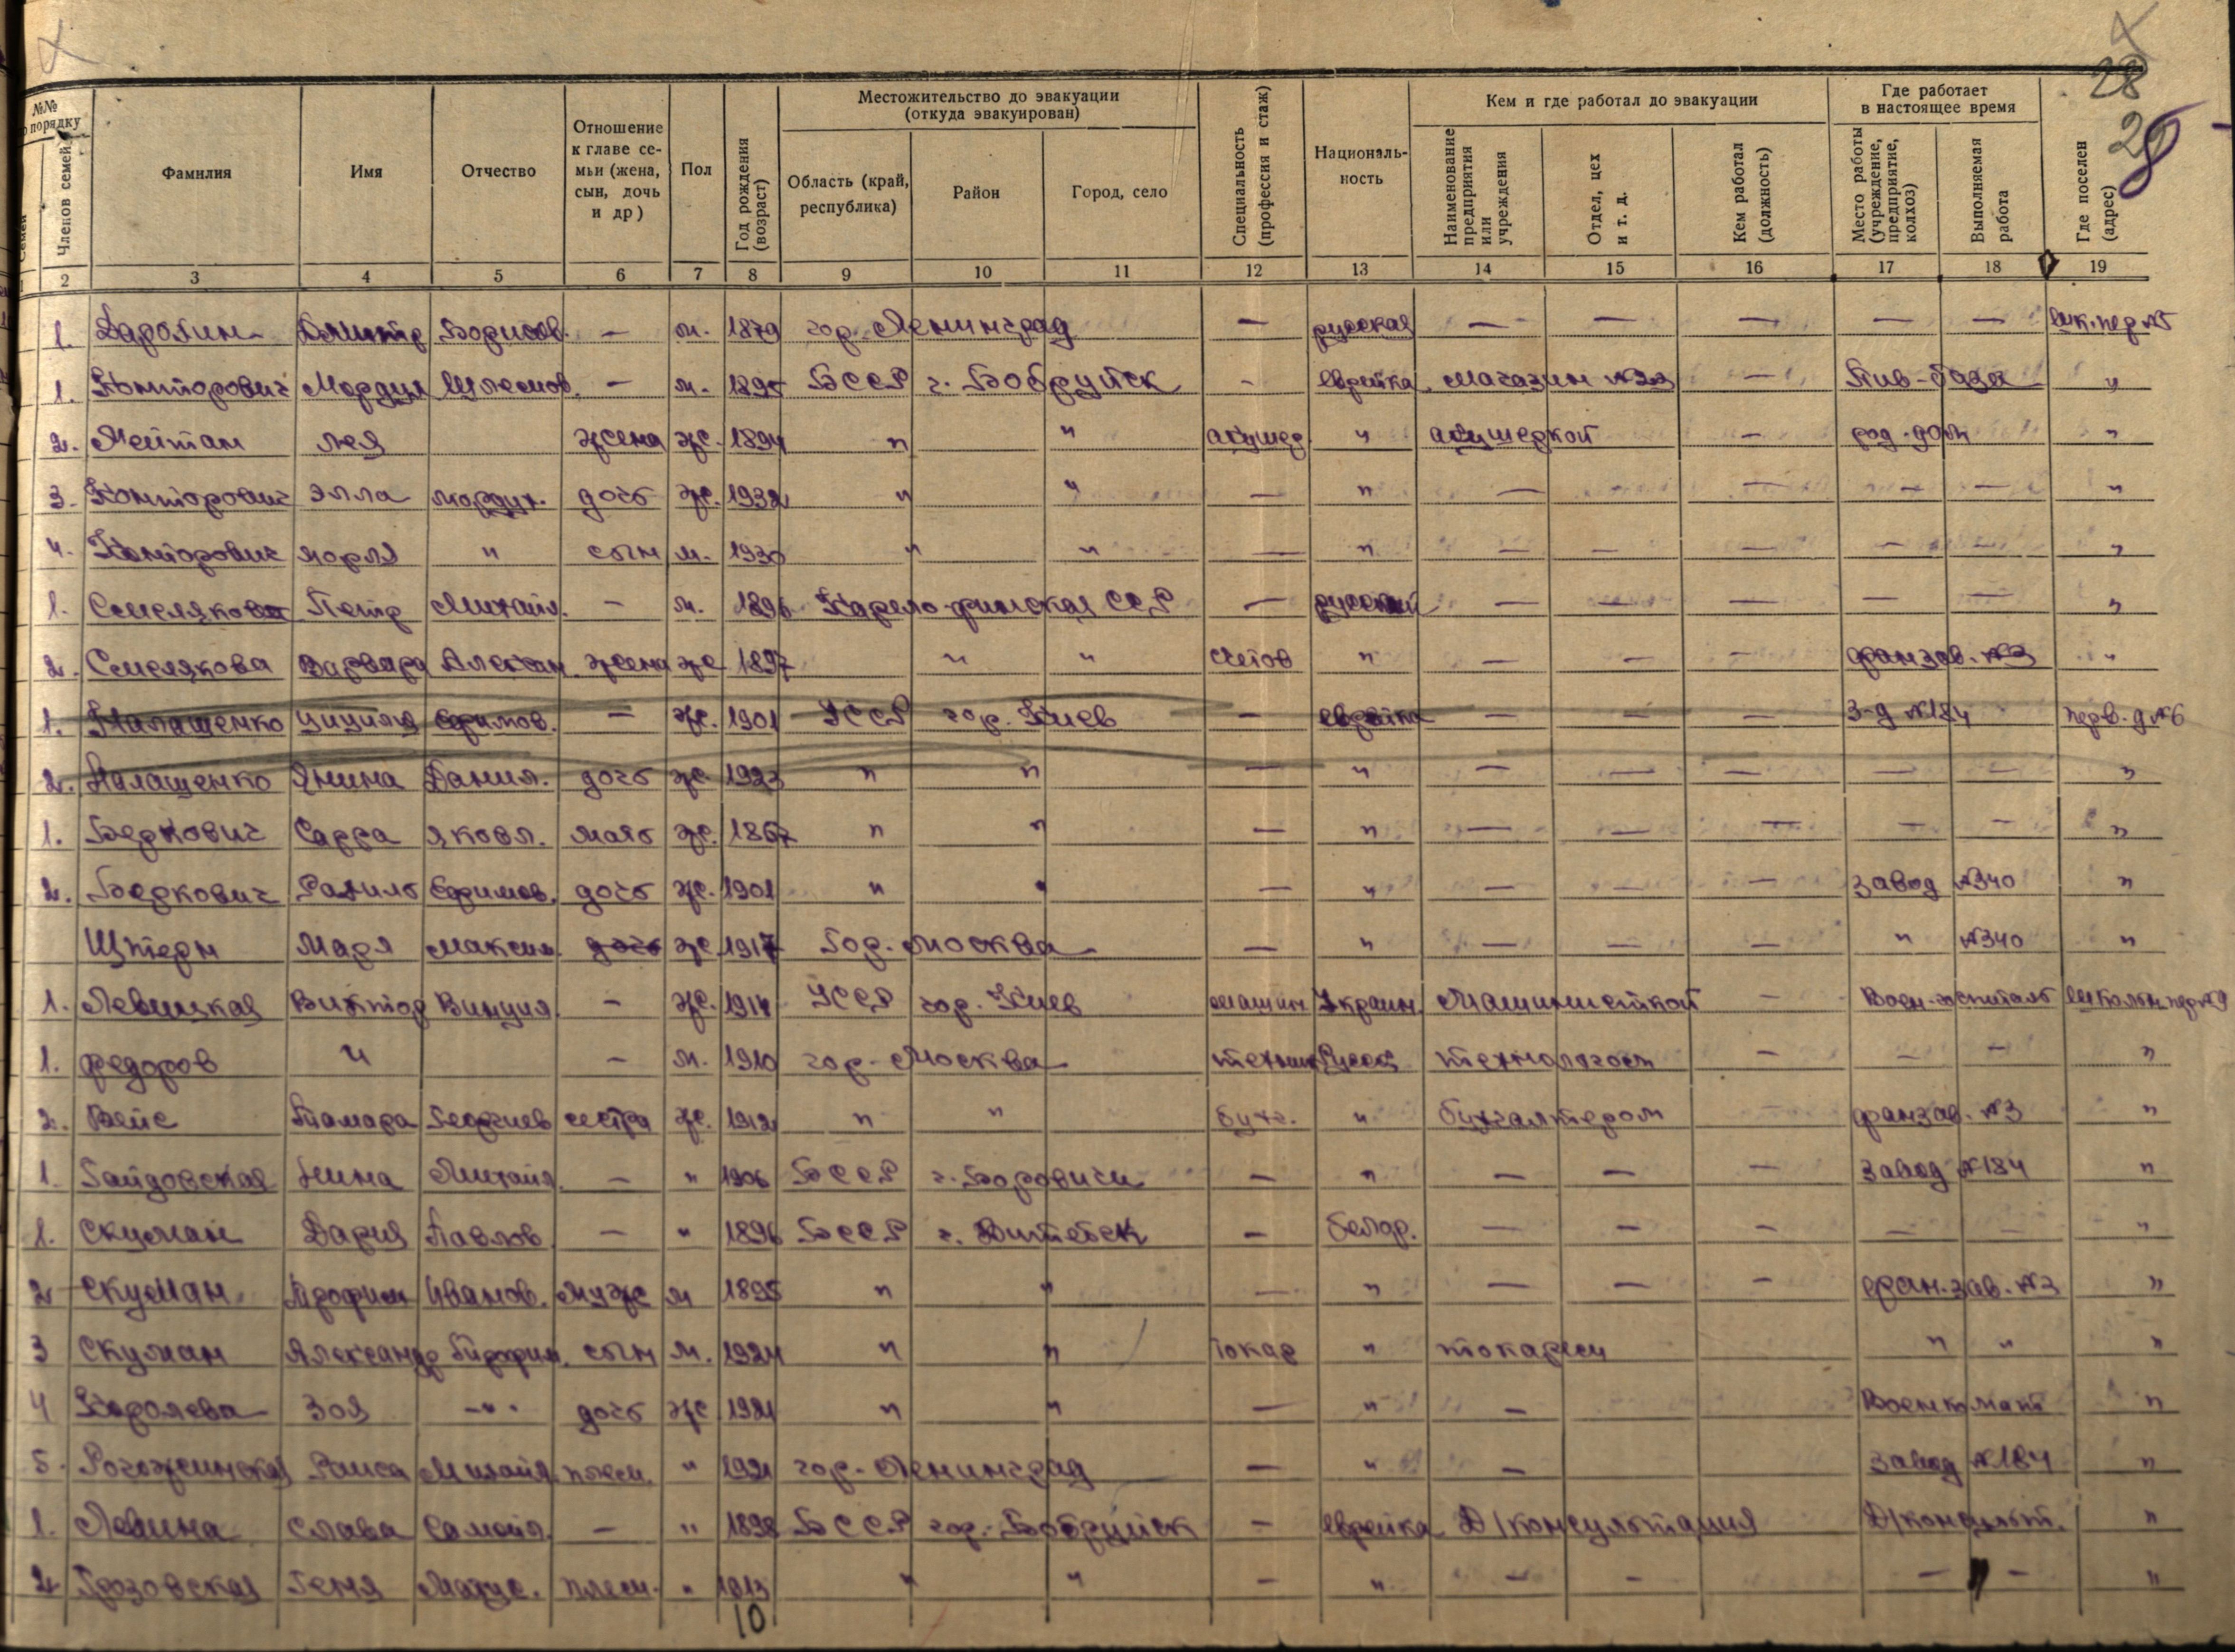 28
28
№№ по порядку
Членов семей
Фамилия
Имя
Отчество
Отношение к главе семьи (жена, сын, дочь и др)
Пол
Год рождения (возраст)
Местожительство до эвакуации (откуда эвакуирован)
Область (край, республика)
Район
Город, село
Специальность (профессия и стаж)
Национальность
Кем и где работал до эвакуации
Наименование предприятия или учреждения
Отдел, цех и т. д.
Кем работал (должность)
Где работает в настоящее время
Место работы (учреждение, предприятие, колхоз)
Выполняемая работа
Где поселен (адрес)
2 3 4 5 6 7 8 9 10 11 12 13 14 15 16 17 18 19
1. Борисов. — м. 1879 гор. Ленинград — русская — — — — —
1. Канторович Мордух Шлемов. — м. 1895 БССР г. Бобруйск - еврейка магазин №23 — Пив-база "
2. Лейтан Лея жена ж. 1894 " " акушер " акушеркой — род-дом "
3. Канторович Элла Мордух. дочь ж. 1932 " " — " — - — — — "
4. Канторович " сын м. 1930 " " — " — — — — — "
1. Смелякова Петр Михайл. — м. 1896 Карело-финская ССР — русский — — — — — "
2. Смелякова Варвара Алексан. жена ж 1897 " " Счетов " — — — франзав. №3 "
1. Палащенко Ефимов. — ж. 1901 УССР гор. Киев — еврейка — — — З-д №184 перв. д №6
2. Палащенко Янина Данил. дочь ж. 1923 " " — " — — — — — "
1. Беркович Сарра Яковл. мать ж. 1867 " " — " — — — — — "
2. Беркович Рахиль Ефимов. дочь ж. 1901 " " — " — — — Завод №340 "
Штерн Маря Максим. дочь ж 1917 Гор. Москва — " — — — " №340 "
1. Левицкая Виктор — ж. 1914 УССР гор. Киев машин Украин. Машинисткой — Воен-госпиталь
1. Федоров " — м. 1910 гор. Москва техник Русск технологом — — — "
2. Вейс Тамара Георгиев сестра ж. 1912 " " бухг. " бухгалтером — франзав. №3 "
1. Гайдовская Нина Михайл. — " 1906 БССР г. Боровичи — " — — — Завод №184 "
1. Скуман Дария Павлов — " 1896 БССР г. Витебск — белор. — — — — — "
2 Скуман Трофим Иванов. муж м 1895 " " — " — — — фран.зав. №3 "
3 Скуман Александр Трофим. сын м. 1924 " " Токар " токарем " " "
4 Королева Зоя —"— дочь ж 1921 " " — " — Военкомат "
5. Рогожинская Раиса Михайл. плем. " 1921 гор. Ленинград — " — Завод №184 "
1. Левина Слава Самойл. — " 1898 БССР гор. Бобруйск - еврейка Д/консультация Д/консульт. "
2 Грозовская Геня плем. " 1913 " " — " — — — — "
10